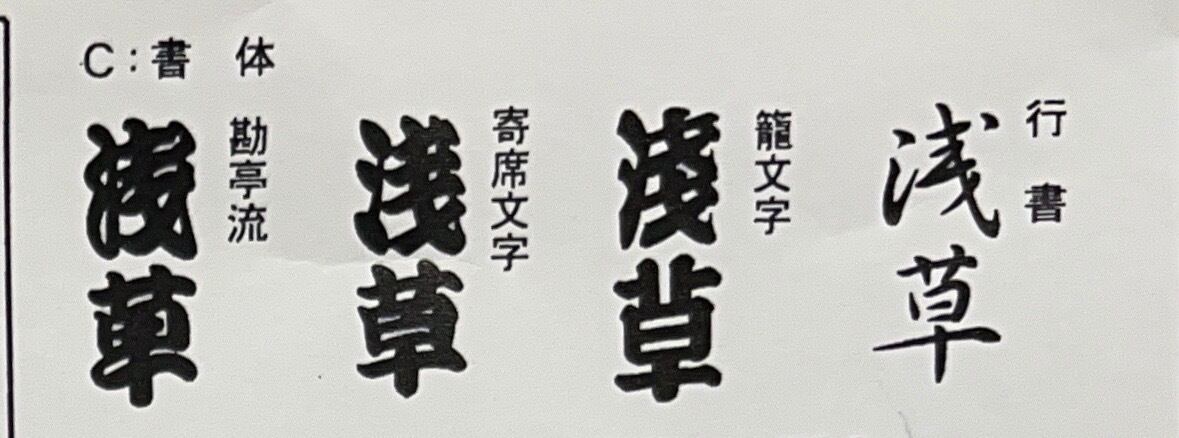 C:書 体
行書
浅草
籠文字
淺草
寄席文字
浅草
勘亭流
浅草